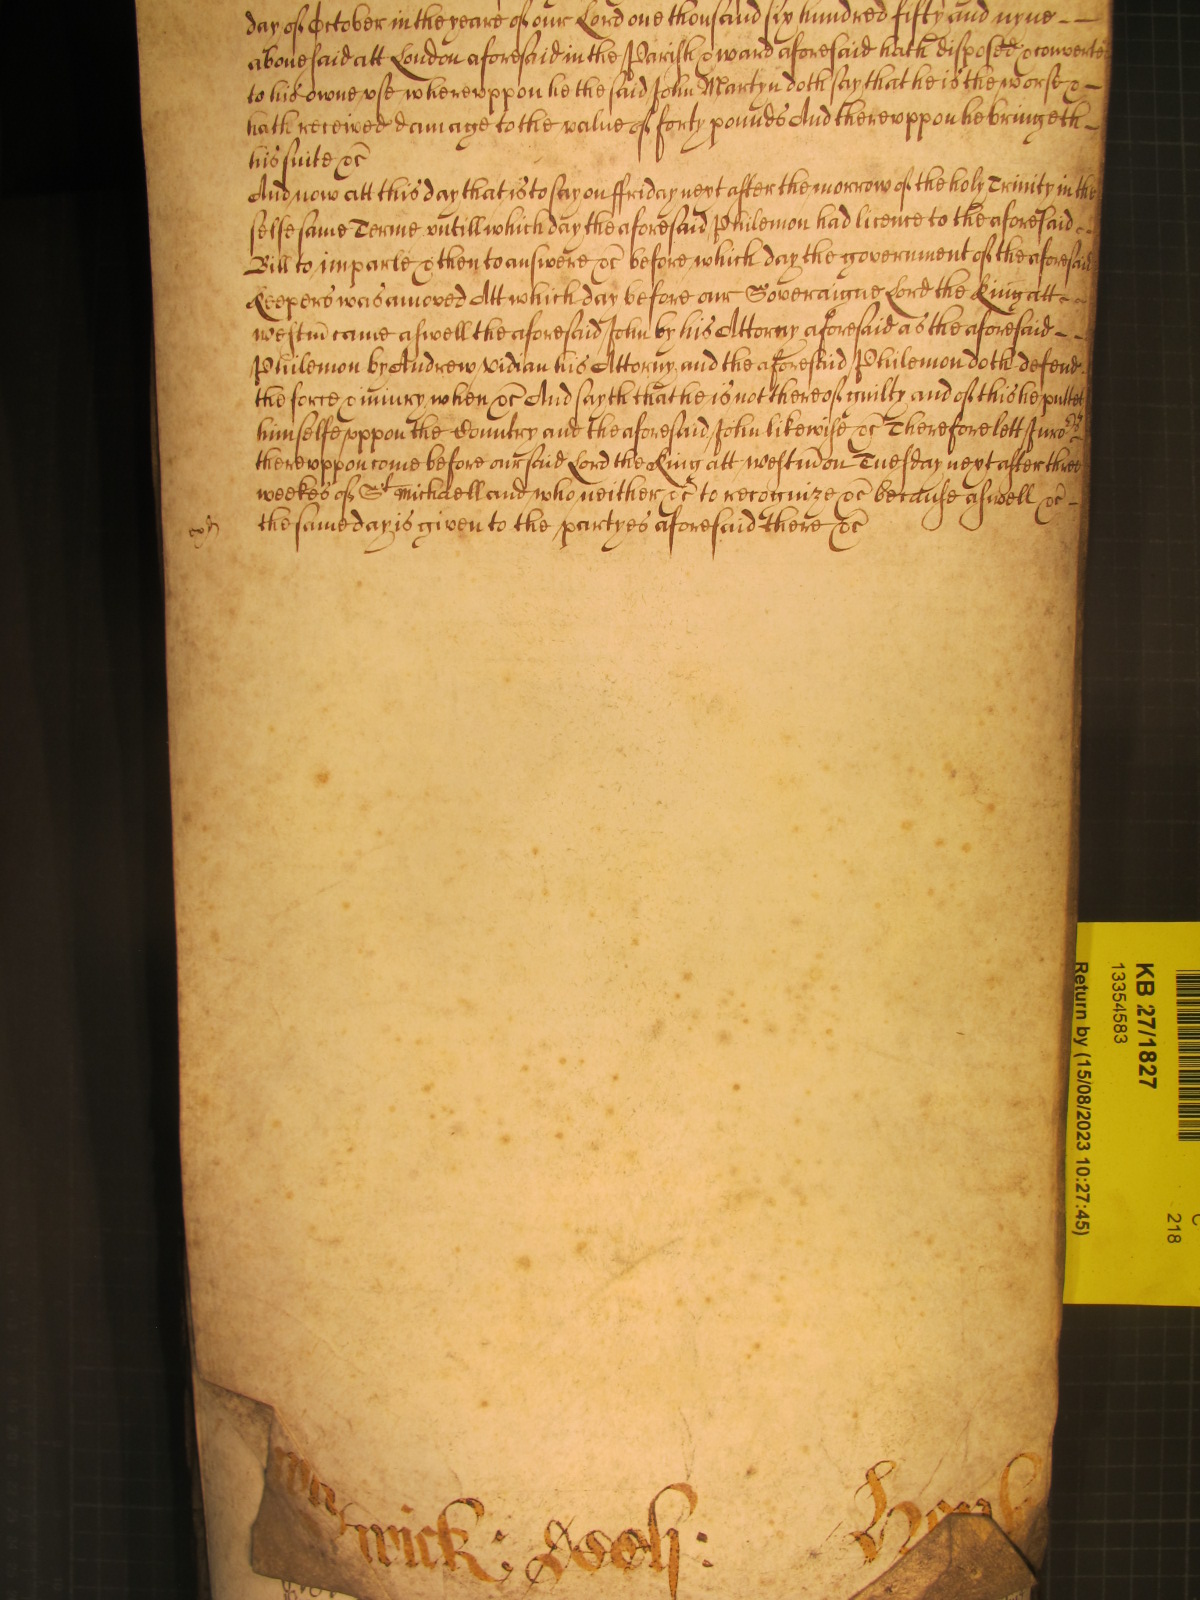 day of October in the yeare of our Lord one thousand six hundred fifty and nyne
abovesaid att London aforesaid in the Parish & ward aforesaid hath disposed & converted
to his owne use whereuppon he the said John Martyn doth say that he is the worse &
hath received damage to the value of forty pounds And thereuppon he bringeth
his suite &c
And now att this day that is to say on ffriday next after the morrow of the holy Trinity in this
selfe same Terme untill which day the aforesaid Philemon had licence to the aforesaid
Bill to imparle & then to answere &c before which day the government of the aforesaid
Keepers was amoved Att which day before our Soveraigne Lord the King att
Westm̄ came aswell the aforesaid John by his Attorny aforesaid as the aforesaid
Philemon by Andrew Vidian his Attorny and the aforesaid Philemon doth defend
the force & iniury when &c And sayth that he is not thereof guilty and of this he puttet
himselfe uppon the Country and the aforesaid John likewise &c Therefore lett Juro
thereuppon come before our said Lord the King att Westm̄ on Tuesday next after three
weekes of St Michaell and who neither &c to recognize &c because aswell &c
the same day is given to the partyes aforesaid there &c
wick:
KB 27/1827
13354583
Return by (15/08/2023 10:27:45)
218